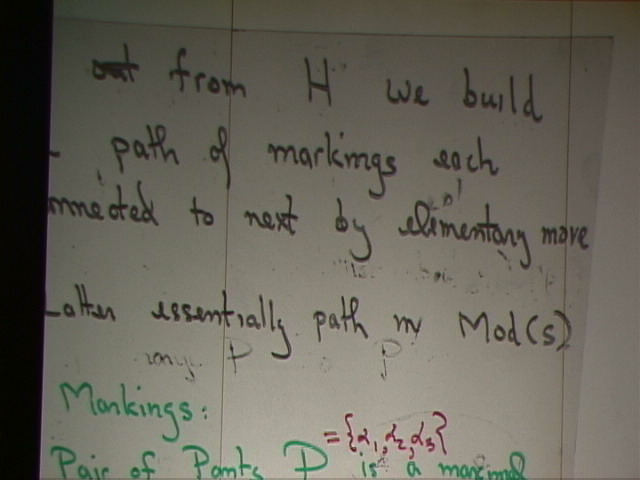 from H we build
path of markings each
nnected to next by elementary move
Latter essentially path in Mod(S)
Markings:
= {α₁, α₂, α₃}
Pair of Pants P is a maximal